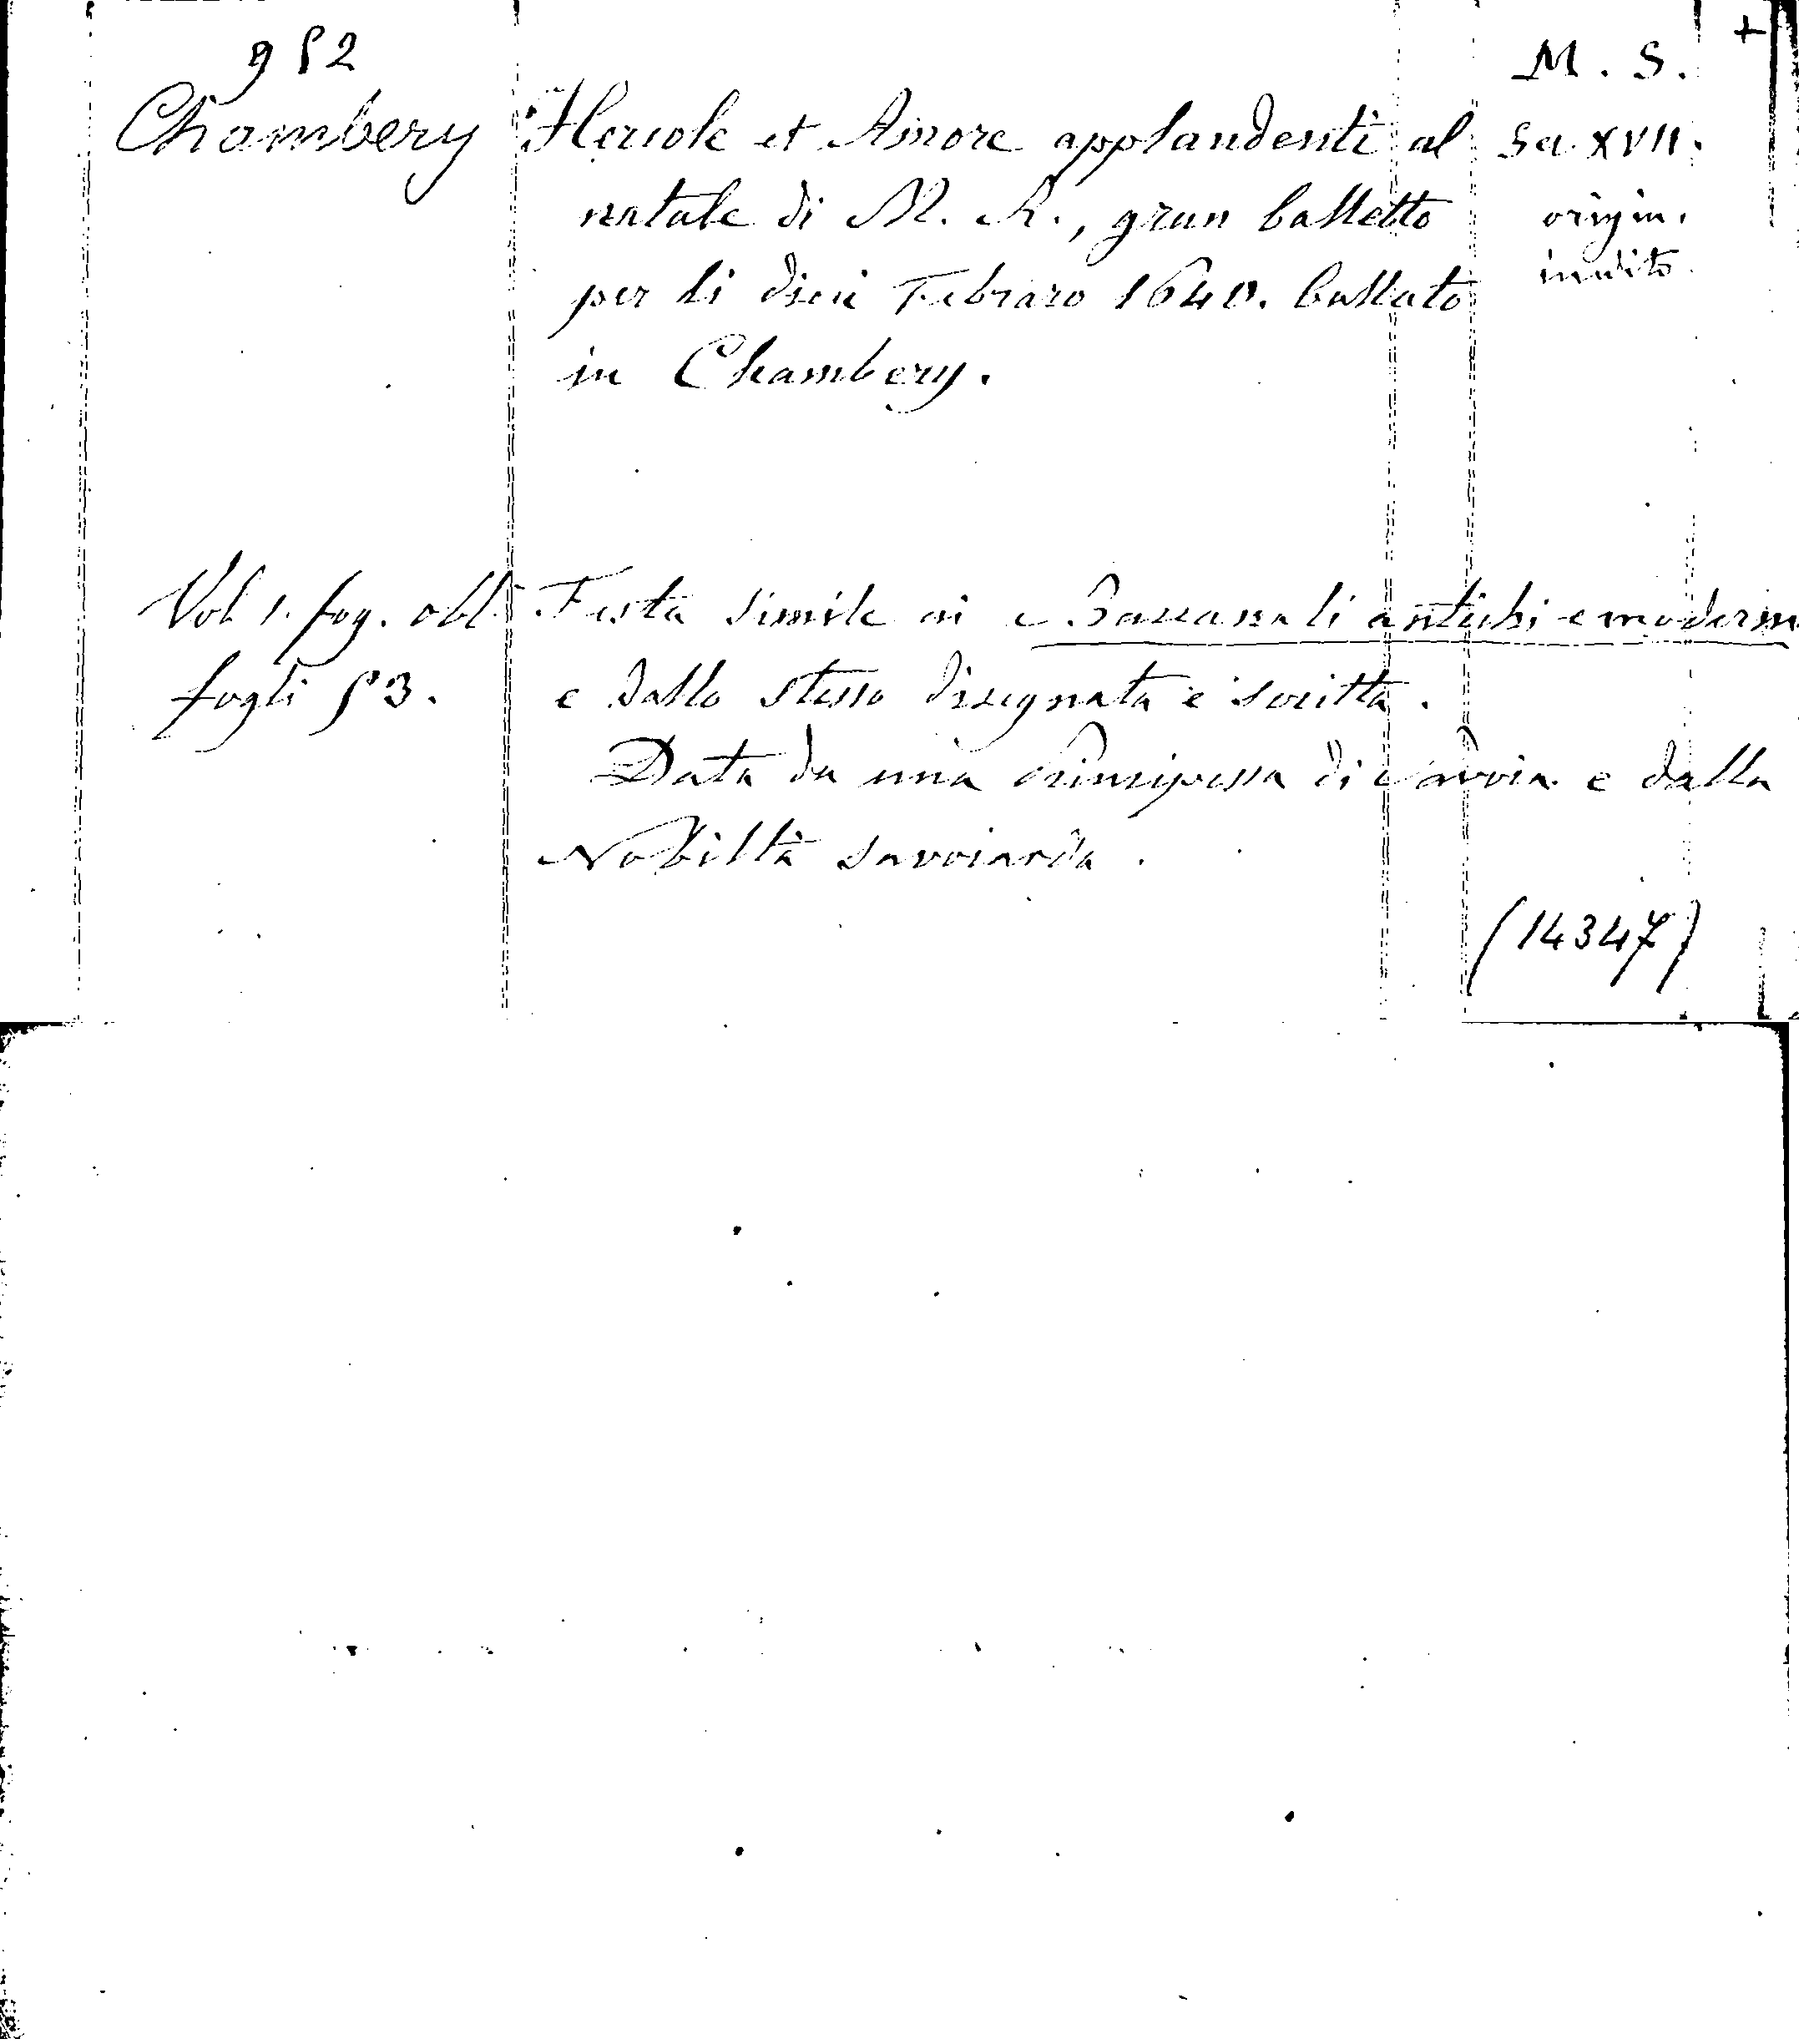 952
M. S. +
Chambery Hercole et Amore applaudenti al Sec. XVII.
natale di M. R., gran balletto origin.
per li dieci Febraro 1640. ballato inedito
in Chambery.
Vol 1. fog. obl. Festa simile ai Baccanali antichi e moderni
fogli 53. e dallo stesso disegnata e scritta.
Data da una Principessa di Savoia e dalla
Nobiltà savoiarda.
(14347)